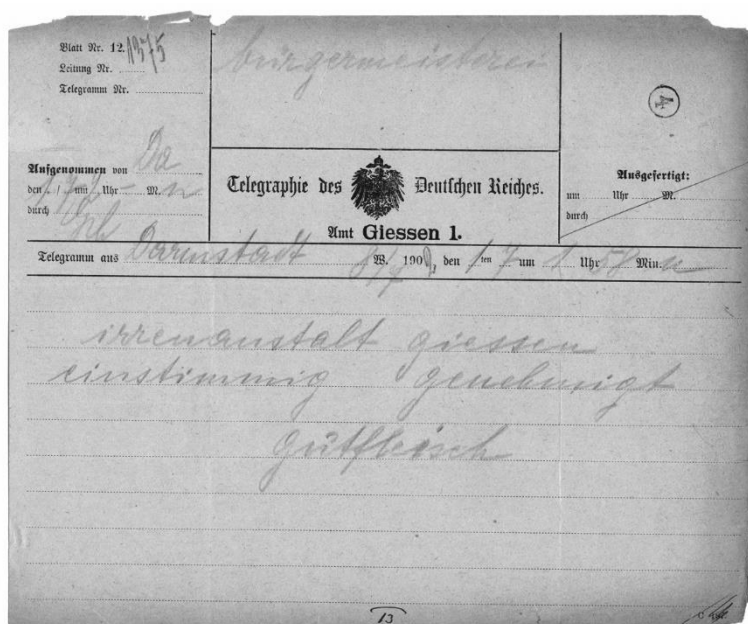 Blatt Nr. 12.
1375
Leitung Nr.
Telegramm Nr.
bürgermeisterei
4
Aufgenommen von Da
den / um Uhr M.
durch
Telegraphie des Deutschen Reiches.
Amt Giessen 1.
Ausgefertigt:
um Uhr M.
durch
Telegramm aus Darmstadt W. 190 den 1 ten 7 um 1 Uhr 50 Min. n
irrenanstalt giessen
einstimmig genehmigt
gutfleisch
13